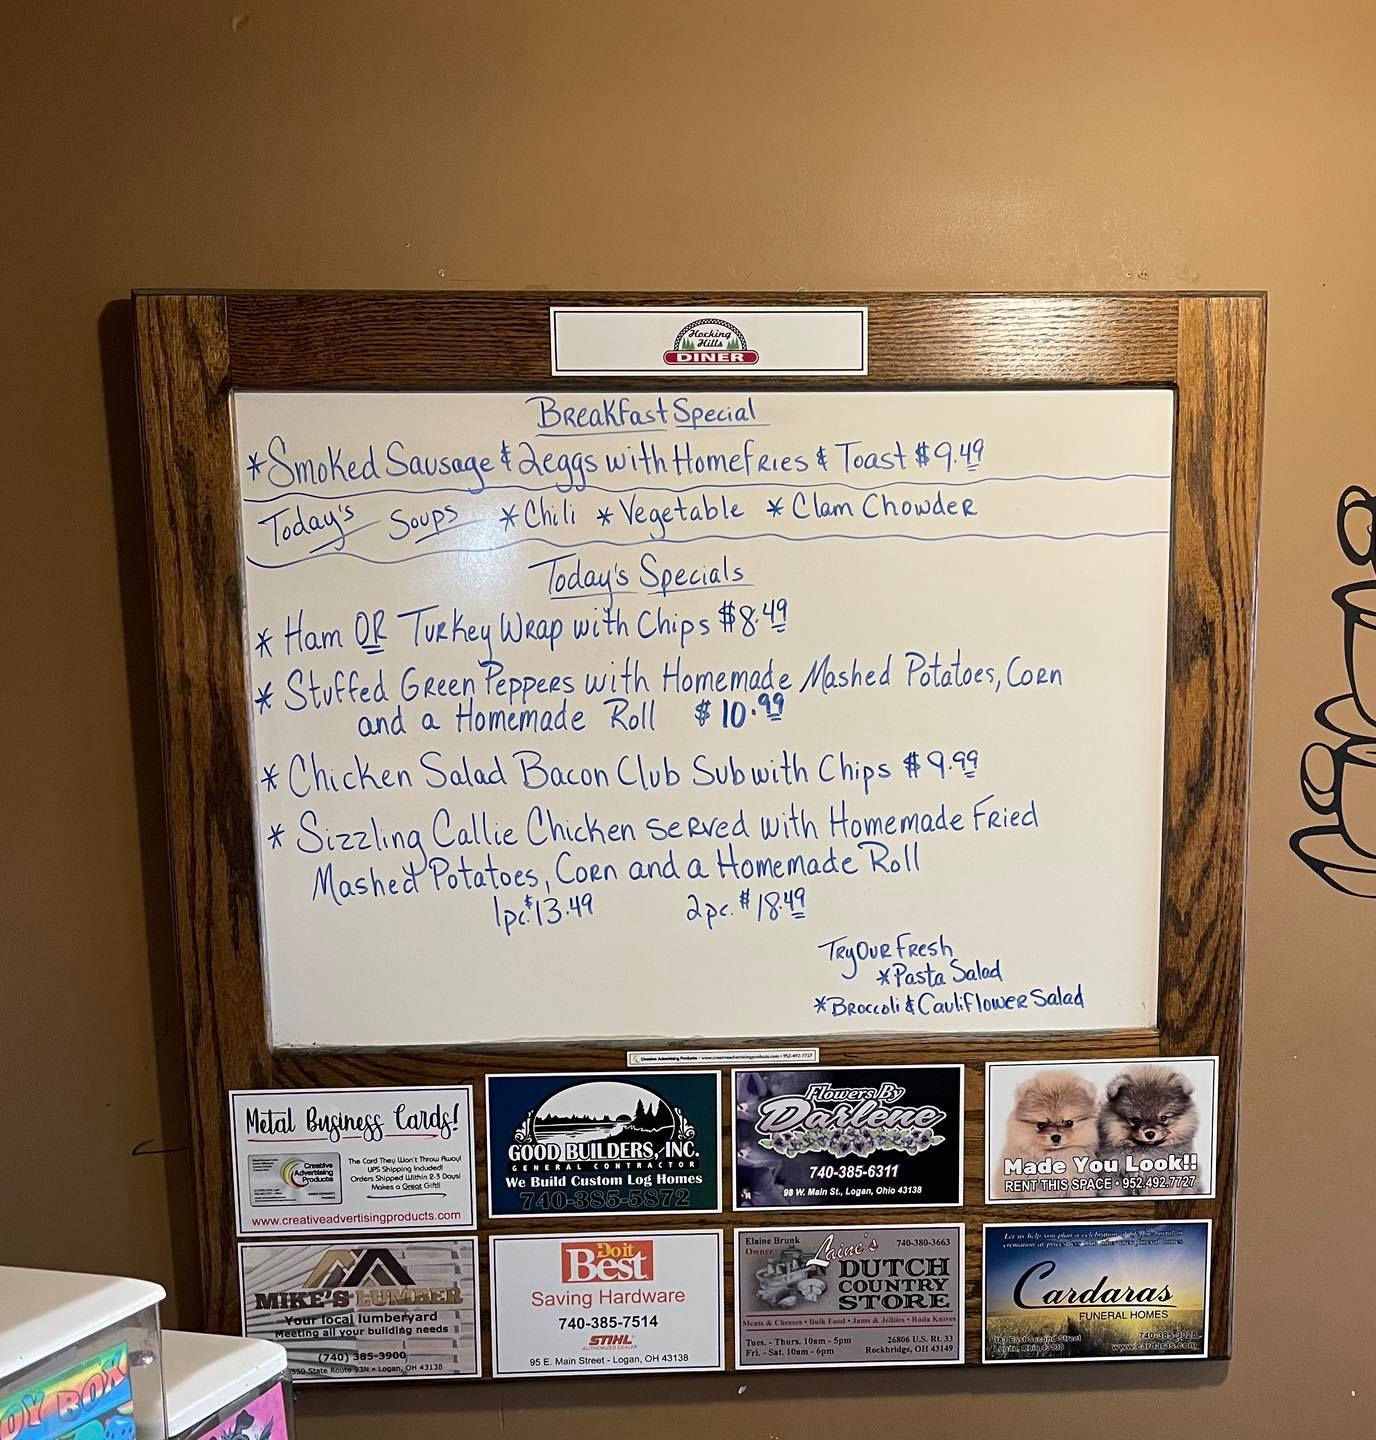 Hocking
Hills
DINER
Breakfast Special
* Smoked Sausage & 2eggs with Homefries & Toast $9.49
Today's Soups * Chili * Vegetable * Clam Chowder
Today's Specials
* Ham OR Turkey Wrap with Chips $8.49
* Stuffed Green Peppers with Homemade Mashed Potatoes, Corn
and a Homemade Roll $10.99
* Chicken Salad Bacon Club Sub with Chips $9.99
* Sizzling Callie Chicken served with Homemade Fried
Mashed Potatoes, Corn and a Homemade Roll
1pc. $13.49 2pc. $18.49
Try Our Fresh
* Pasta Salad
* Broccoli & Cauliflower Salad
Creative Advertising Products - www.creativeadvertisingproducts.com • 952-492-7727
Metal Business Cards!
Creative
Advertising
Products
The Card They Won't Throw Away!
UPS Shipping Included!
Orders Shipped Within 2-3 Days!
Makes a Great Gift!!
www.creativeadvertisingproducts.com
GOOD BUILDERS, INC.
GENERAL CONTRACTOR
We Build Custom Log Homes
740-385-5872
Flowers By
Darlene
740-385-6311
98 W. Main St., Logan, Ohio 43138
Made You Look!!
RENT THIS SPACE • 952.492.7727
MIKE'S LUMBER
Your local lumberyard
Meeting all your building needs
(740) 385-3900
State Route 93N • Logan, OH 43138
Do it
Best
Saving Hardware
740-385-7514
STIHL
AUTHORIZED DEALER
95 E. Main Street - Logan, OH 43138
Elaine Brunk
Owner
740-380-3663
Laine's
DUTCH
COUNTRY
STORE
Meats & Cheeses • Bulk Food • Jams & Jellies • Rada Knives
Tues. - Thurs. 10am - 5pm
Fri. - Sat. 10am - 6pm
26806 U.S. Rt. 33
Rockbridge, OH 43149
Let us help you plan a celebration of life, the burial or
Cardaras
FUNERAL HOMES
183 East Second Street
Logan, Ohio 43138
www.cardaras.com
OY BOX